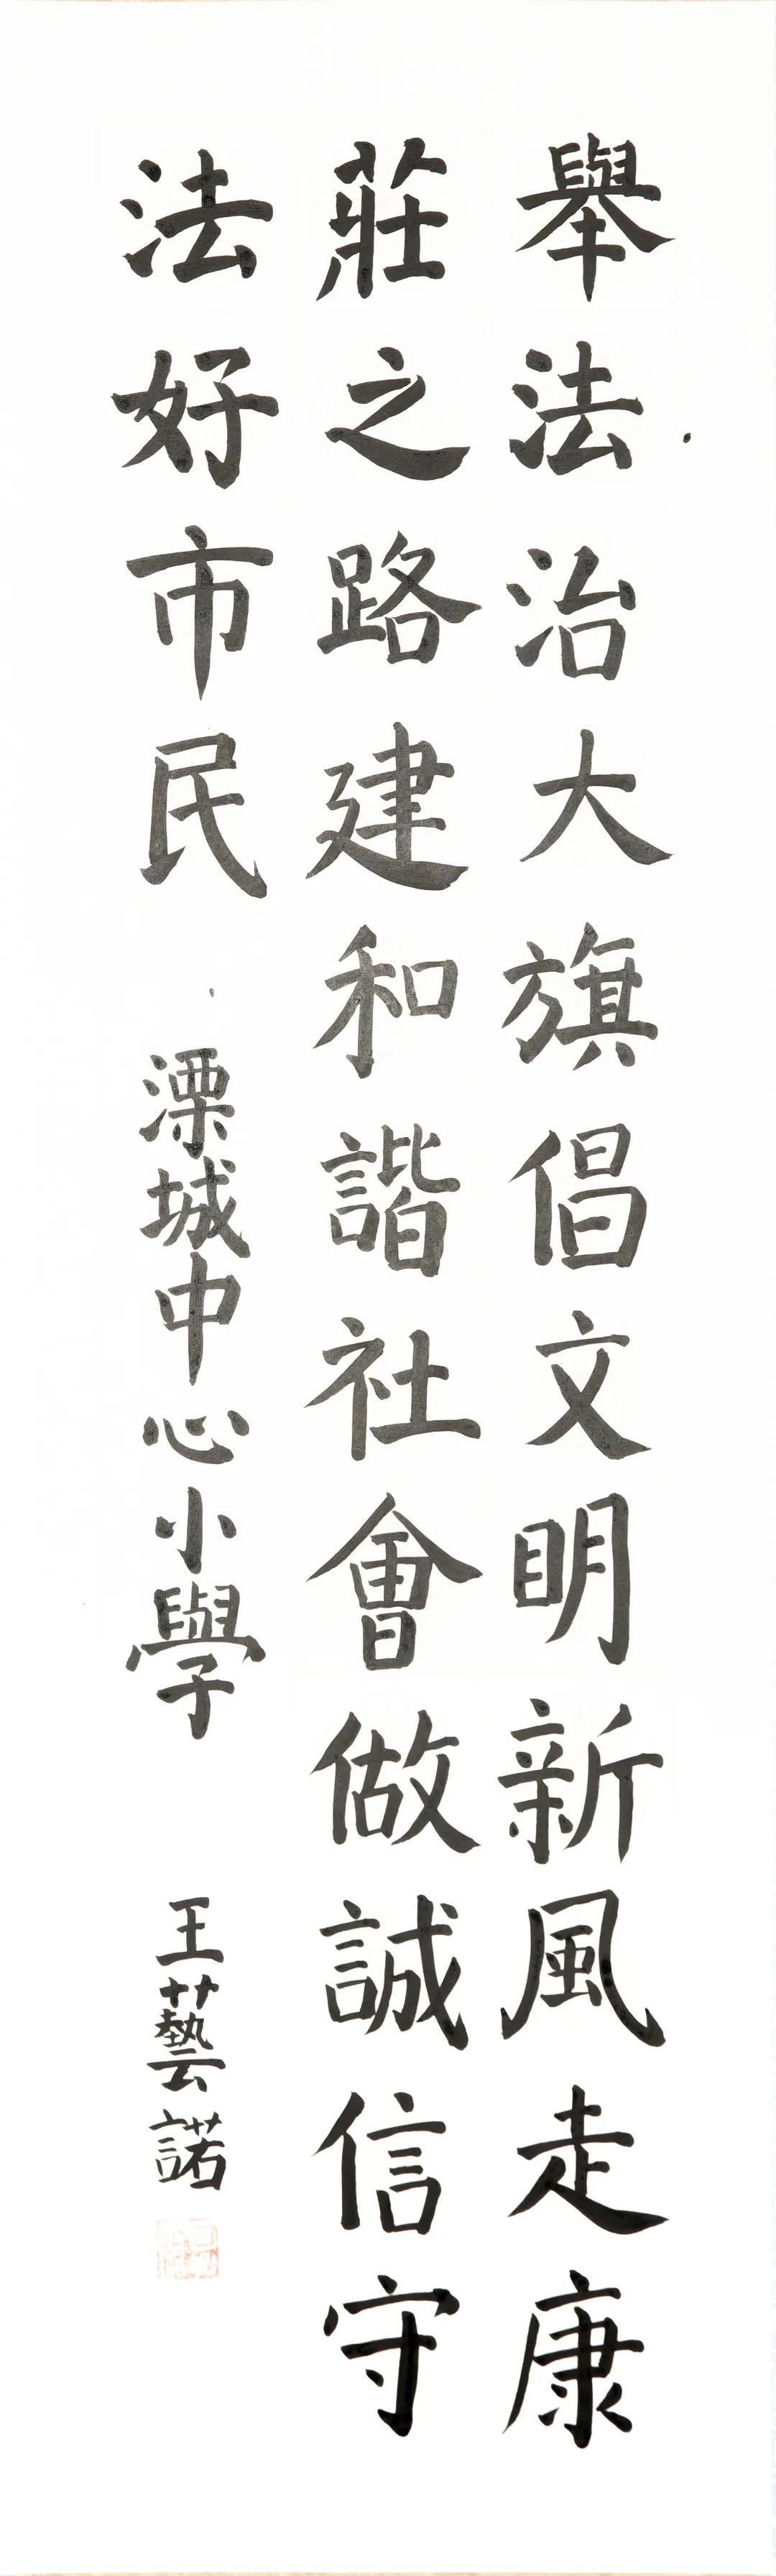 舉法治大旗倡文明新風走康
莊之路建和諧社會做誠信守
法好市民
溧城中心小學
王藝諾